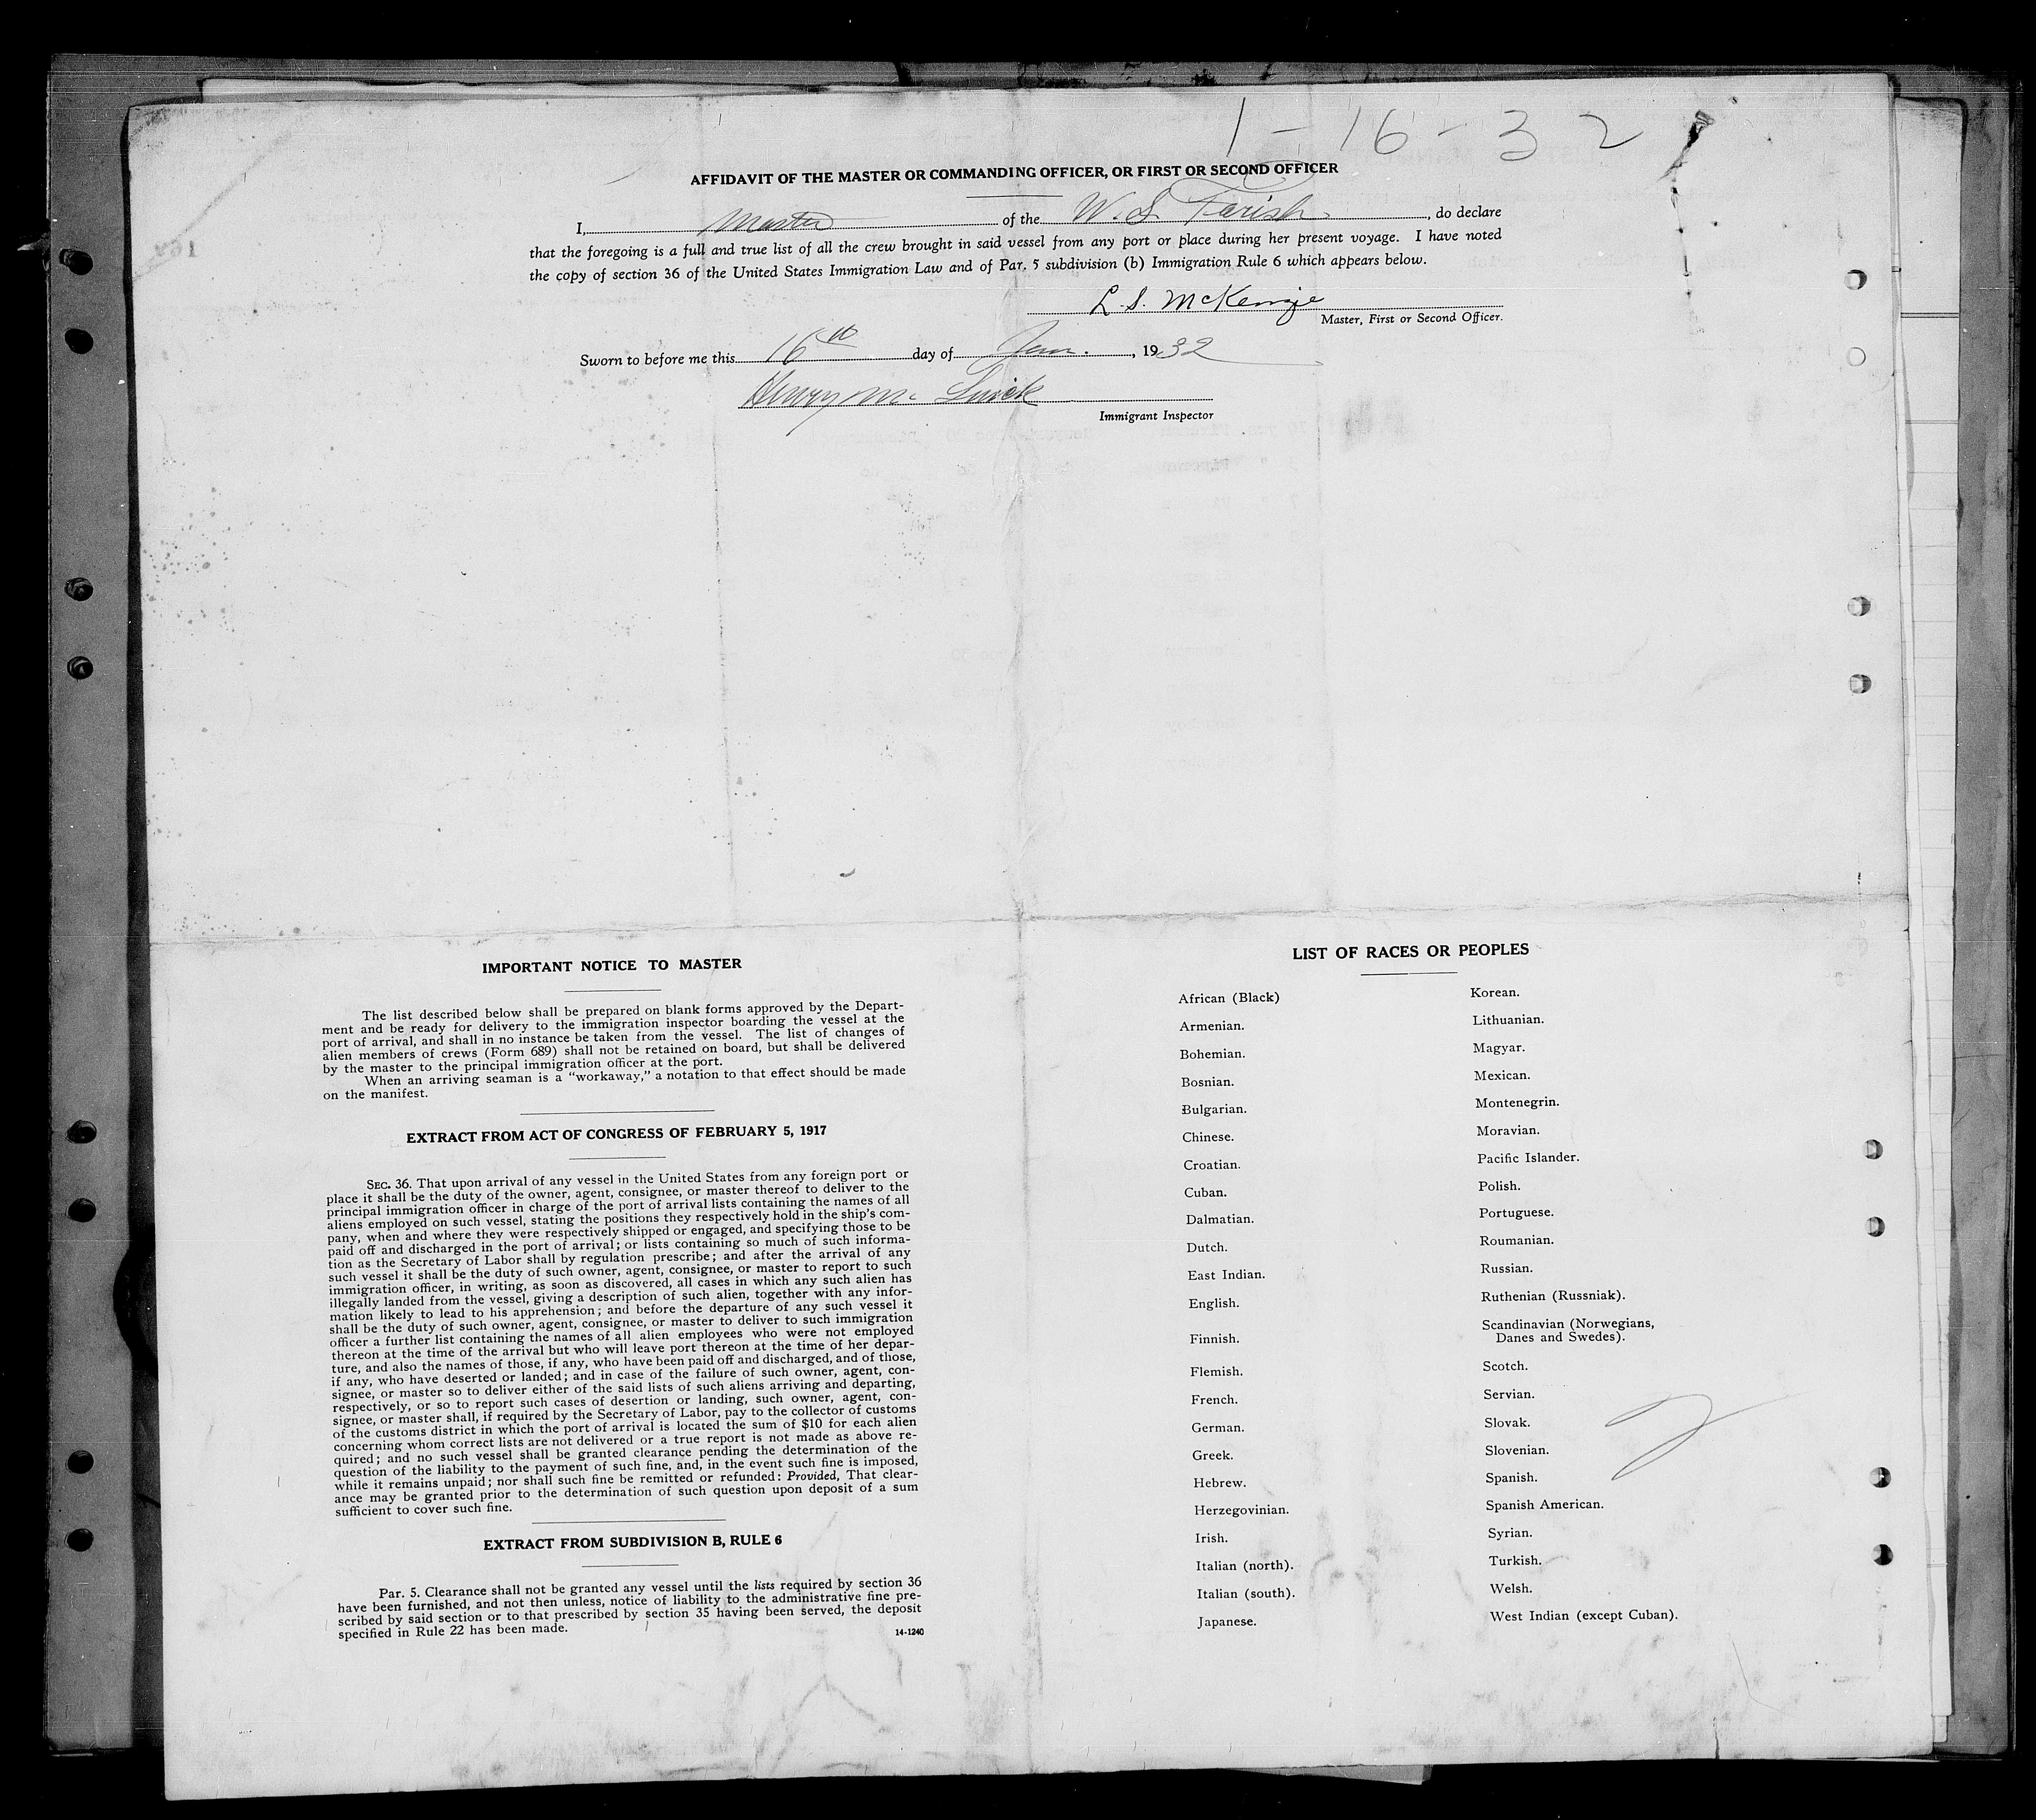 1-16-32
AFFIDAVIT OF THE MASTER OR COMMANDING OFFICER, OR FIRST OR SECOND OFFICER
I, Master of the W. S. Farish, do declare
that the foregoing is a full and true list of all the crew brought in said vessel from any port or place during her present voyage. I have noted
the copy of section 36 of the United States Immigration Law and of Par. 5 subdivision (b) Immigration Rule 6 which appears below.
L. S. McKenzie
Master, First or Second Officer.
Sworn to before me this 16th day of Jan., 1932
Henry M.
Immigrant Inspector
IMPORTANT NOTICE TO MASTER
The list described below shall be prepared on blank forms approved by the Depart-
ment and be ready for delivery to the immigration inspector boarding the vessel at the
port of arrival, and shall in no instance be taken from the vessel. The list of changes of
alien members of crews (Form 689) shall not be retained on board, but shall be delivered
by the master to the principal immigration officer at the port.
When an arriving seaman is a "workaway," a notation to that effect should be made
on the manifest.
EXTRACT FROM ACT OF CONGRESS OF FEBRUARY 5, 1917
SEC. 36. That upon arrival of any vessel in the United States from any foreign port or
place it shall be the duty of the owner, agent, consignee, or master thereof to deliver to the
principal immigration officer in charge of the port of arrival lists containing the names of all
aliens employed on such vessel, stating the positions they respectively hold in the ship's com-
pany, when and where they were respectively shipped or engaged, and specifying those to be
paid off and discharged in the port of arrival; or lists containing so much of such informa-
tion as the Secretary of Labor shall by regulation prescribe; and after the arrival of any
such vessel it shall be the duty of such owner, agent, consignee, or master to report to such
immigration officer, in writing, as soon as discovered, all cases in which any such alien has
illegally landed from the vessel, giving a description of such alien, together with any infor-
mation likely to lead to his apprehension; and before the departure of any such vessel it
shall be the duty of such owner, agent, consignee, or master to deliver to such immigration
officer a further list containing the names of all alien employees who were not employed
thereon at the time of the arrival but who will leave port thereon at the time of her depar-
ture, and also the names of those, if any, who have been paid off and discharged, and of those,
if any, who have deserted or landed; and in case of the failure of such owner, agent, con-
signee, or master so to deliver either of the said lists of such aliens arriving and departing,
respectively, or so to report such cases of desertion or landing, such owner, agent, con-
signee, or master shall, if required by the Secretary of Labor, pay to the collector of customs
of the customs district in which the port of arrival is located the sum of $10 for each alien
concerning whom correct lists are not delivered or a true report is not made as above re-
quired; and no such vessel shall be granted clearance pending the determination of the
question of the liability to the payment of such fine, and, in the event such fine is imposed,
while it remains unpaid; nor shall such fine be remitted or refunded: Provided, That clear-
ance may be granted prior to the determination of such question upon deposit of a sum
sufficient to cover such fine.
EXTRACT FROM SUBDIVISION B, RULE 6
Par. 5. Clearance shall not be granted any vessel until the lists required by section 36
have been furnished, and not then unless, notice of liability to the administrative fine pre-
scribed by said section or to that prescribed by section 35 having been served, the deposit
specified in Rule 22 has been made.
14-1240
LIST OF RACES OR PEOPLES
African (Black)
Armenian.
Bohemian.
Bosnian.
Bulgarian.
Chinese.
Croatian.
Cuban.
Dalmatian.
Dutch.
East Indian.
English.
Finnish.
Flemish.
French.
German.
Greek.
Hebrew.
Herzegovinian.
Irish.
Italian (north).
Italian (south).
Japanese.
Korean.
Lithuanian.
Magyar.
Mexican.
Montenegrin.
Moravian.
Pacific Islander.
Polish.
Portuguese.
Roumanian.
Russian.
Ruthenian (Russniak).
Scandinavian (Norwegians,
Danes and Swedes).
Scotch.
Servian.
Slovak.
Slovenian.
Spanish.
Spanish American.
Syrian.
Turkish.
Welsh.
West Indian (except Cuban).